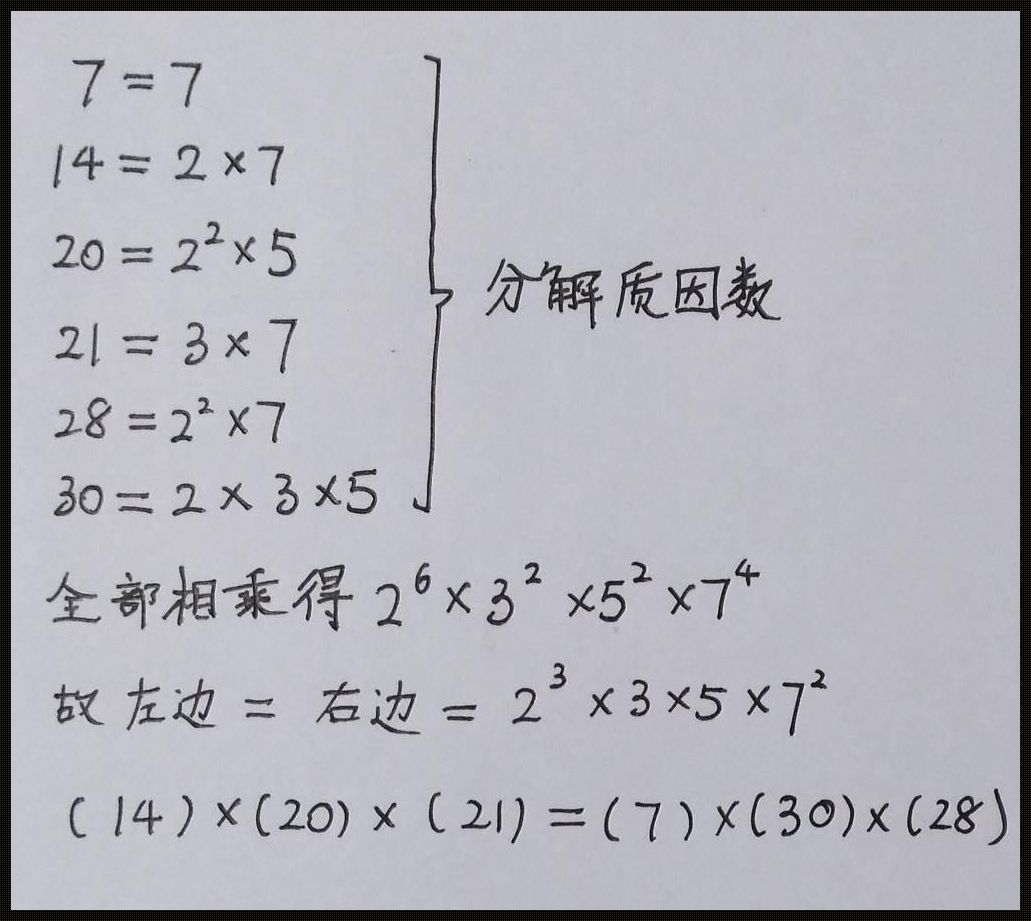 7 = 7
14 = 2 × 7
20 = 2² × 5
21 = 3 × 7
28 = 2² × 7
30 = 2 × 3 × 5
分解质因数
全部相乘得 2⁶ × 3² × 5² × 7⁴
故左边 = 右边 = 2³ × 3 × 5 × 7²
(14) × (20) × (21) = (7) × (30) × (28)